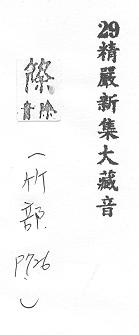 29精嚴新集大藏音
篨
除音
(竹部 P726)